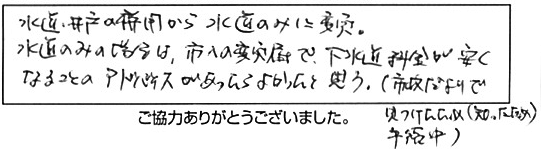 水道、井戸の併用から水道のみに変更。
水道のみの場合は、市への変更届で、下水道料金が安く
なることのアドバイスがあったらよかったと思う。(市政だよりで
見つけたため(知ったため)
手続中)
ご協力ありがとうございました。